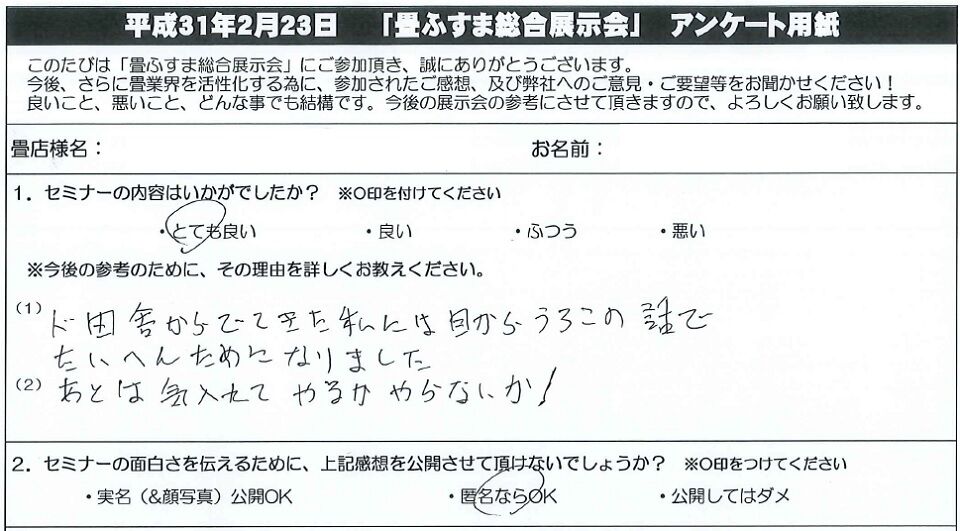 平成31年2月23日 「畳ふすま総合展示会」 アンケート用紙
このたびは「畳ふすま総合展示会」にご参加頂き、誠にありがとうございます。
今後、さらに畳業界を活性化する為に、参加されたご感想、及び弊社へのご意見・ご要望等をお聞かせください！
良いこと、悪いこと、どんな事でも結構です。今後の展示会の参考にさせて頂きますので、よろしくお願い致します。
畳店様名： お名前：
1．セミナーの内容はいかがでしたか？ ※○印を付けてください
・とても良い ・良い ・ふつう ・悪い
※今後の参考のために、その理由を詳しくお教えください。
(1) ド田舎からでてきた私には目からうろこの話で
たいへんためになりました
(2) あとは気入れてやるかやらないか！
2．セミナーの面白さを伝えるために、上記感想を公開させて頂けないでしょうか？ ※○印をつけてください
・実名（&顔写真）公開OK ・匿名ならOK ・公開してはダメ